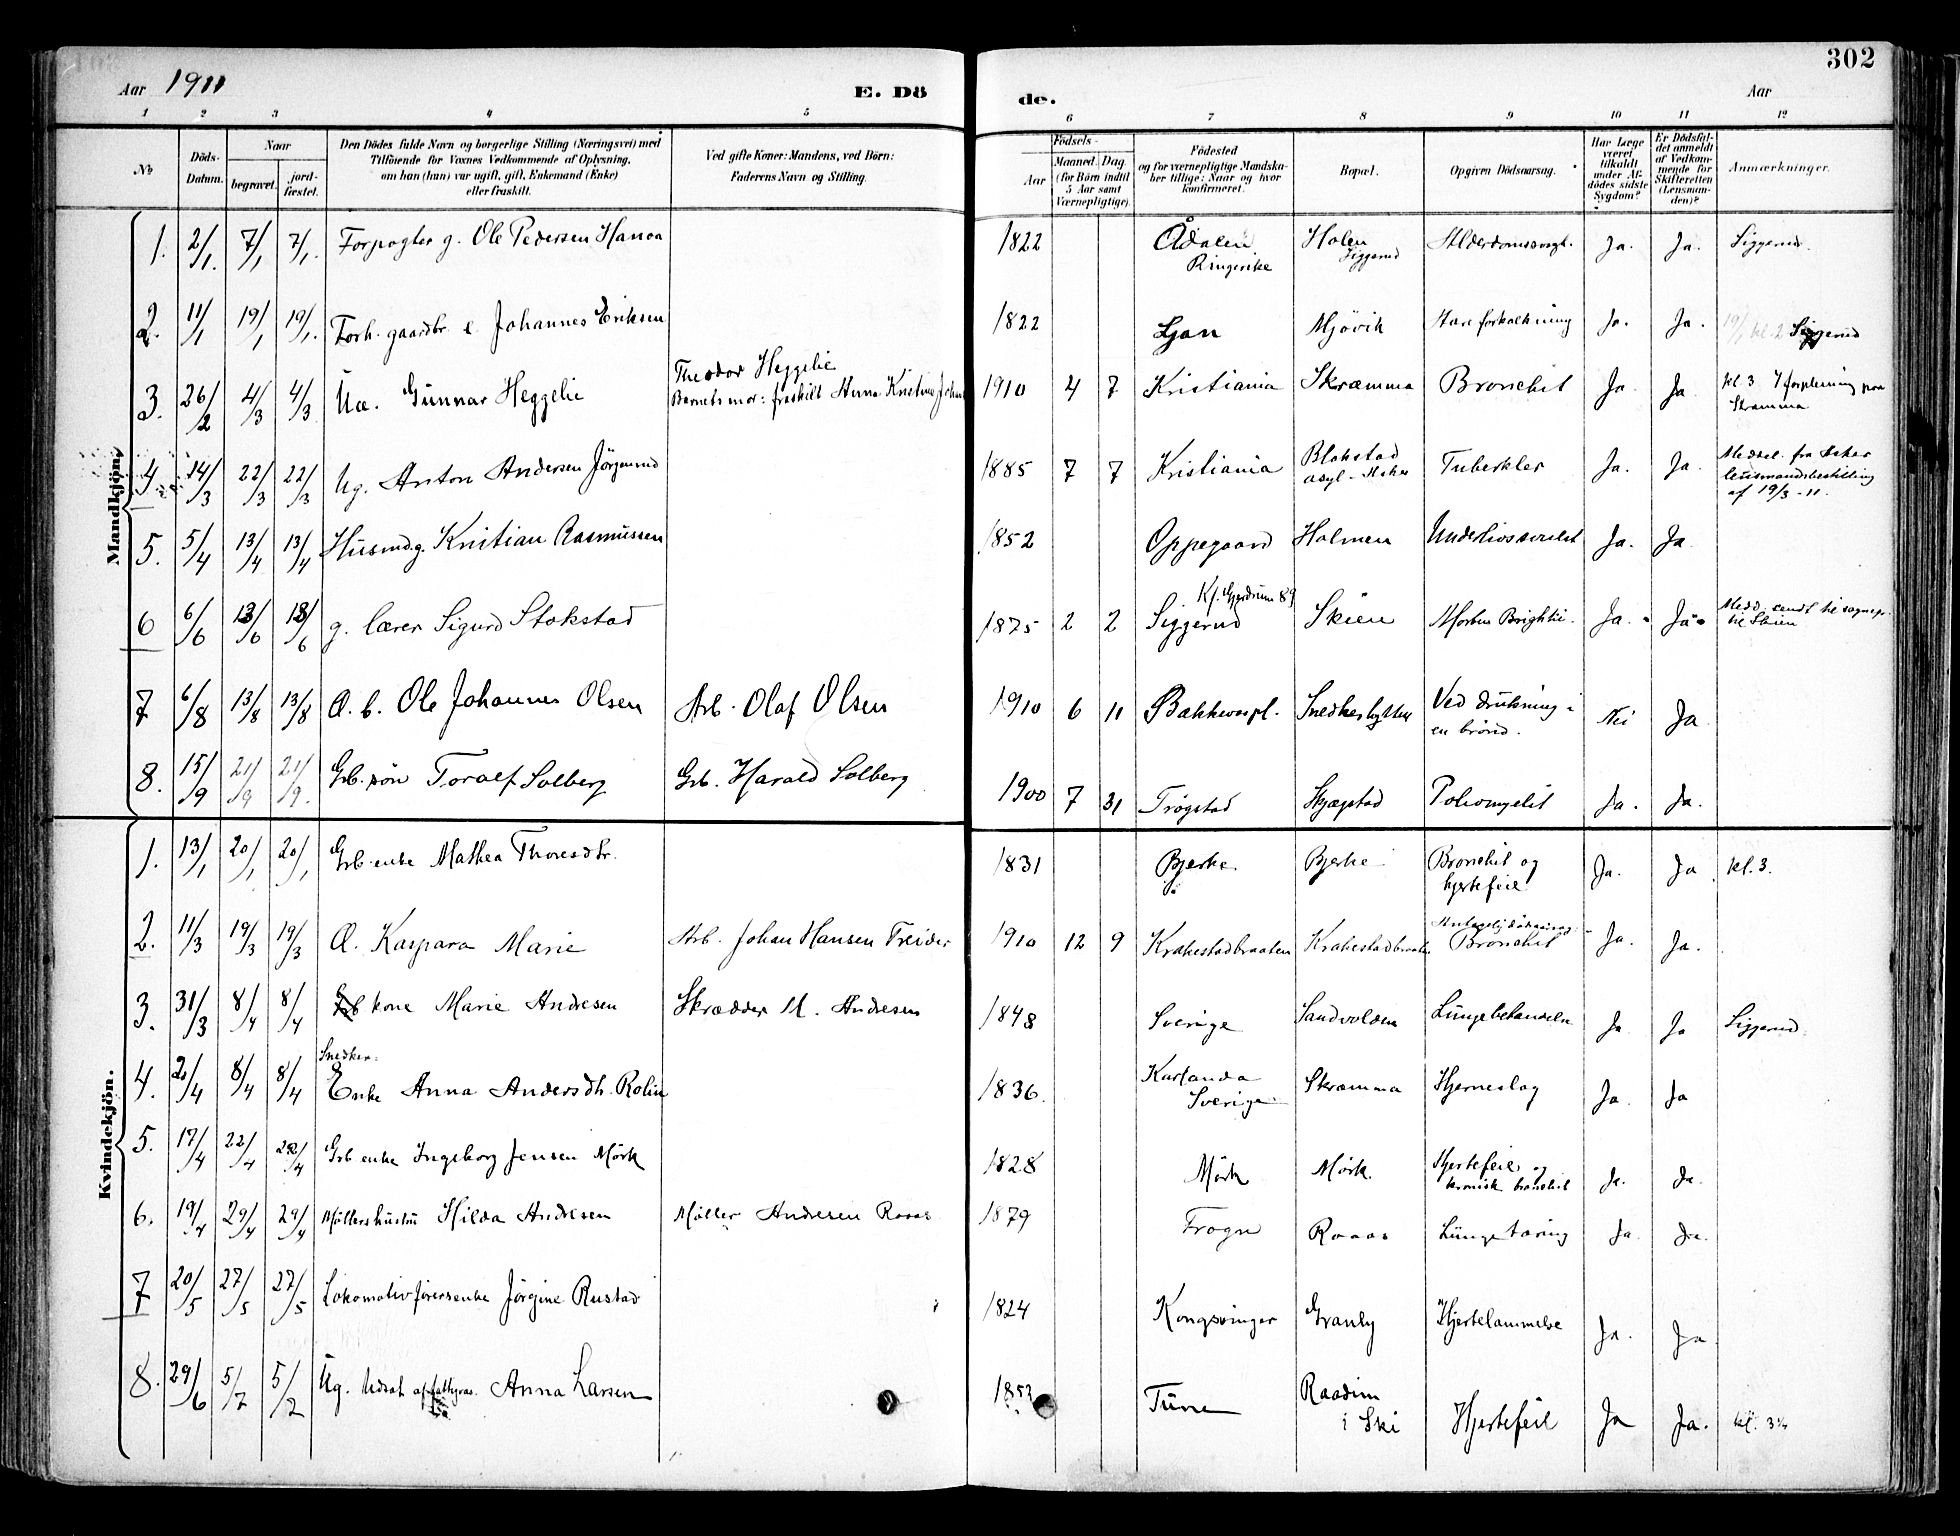 302
Aar 1911
E. Dö
de.
Aar
1 2 3 4 5 6 7 8 9 10 11 12
No
Döds-Datum.
Naar
begravet.
jordfæstet.
Den Dödes fulde Navn og borgerlige Stilling (Næringsvei) med
Tilföiende for Voxnes Vedkommende af Oplysning,
om han (hun) var ugift, gift, Enkemand (Enke)
eller fraskilt.
Ved gifte Koner: Mandens, ved Börn:
Faderens Navn og Stilling.
Födsels-
Aar
Maaned. Dag.
(for Börn indtil
5 Aar samt
Værnepligtige).
Födested
og for værnepligtige Mandska-
ber tillige: Naar og hvor
konfirmeret.
Bopæl.
Opgiven Dödsaarsag.
Har Læge
været
tilkaldt
under Af-
dödes sidste
Sygdom?
Er Dödsfal-
det anmeldt
af Vedkom-
mende for
Skifteretten
(Lensman-
den)?
Anmærkninger.
Mandkjön.
1. 2/1. 7/1 7/1. Forpagter g. Ole Pedersen Hanoa 1822 Ådalen Ringerike Holen Siggerud Alderdomssvagt. Ja. Ja. Siggerud.
2. 11/1 19/1 19/1. Forh. gaardbr. e. Johannes Eriksen 1822 Ljan Mjövik Aareforkalkning Ja. Ja. 19/1 kl. 2 Siggerud
3. 26/2 4/3 4/3 Uæ. Gunnar Heggelie Theodor Heggelie
Barnets mor: fraskilt Anna Kristine 1910 4 7 Kristiania Skræmma Bronchit Ja. Ja. kl. 3 I forpleining paa
Skræmma
4 14/3 22/3 22/3 Ug. Anton Andersen Jörgensrud 1885 7 7 Kristiania Blakstad
asyl - Asker Tuberkler Ja. Ja. Meddel. fra Asker
lensmandsbestilling
af 19/3 - 11.
5. 5/4 13/4 13/4 Husmd. g. Kristian Rasmussen 1852 Oppegaard Holmen Underlivssvulst Ja. Ja
6 6/6 13/6 13/6 g. lærer Sigurd Stokstad 1875 2 2 Kf. Gjerdrum 89
Siggerud Skien Morbus Brightii. Ja. Ja. Medd. sendt til sognepr.
til Skien
7 6/8 13/8 13/8 Æ. b. Ole Johannes Olsen Arb. Olaf Olsen 1910 6 11 Bakkenspl. Snedkerhytten Ved drukning i
en brönd. Nei Ja
8. 15/9 21/9 21/9. Grb. sön Toralf Solberg Grb. Harald Solberg 1900 7 31 Trögstad Skjægstad Poliomyelit Ja. Ja.
Kvindekjön.
1. 13/1 20/1 20/1 Grb. enke Mathea Thoresdtr. 1831 Bjerke Bjerke Bronchit og
hjertefeil Ja. Ja kl. 3.
2. 11/3 19/3 19/3 Æ. Kaspara Marie Arb. Johan Hansen Treider 1910 12 9 Krakestadbraaten Krakestadbraaten Bronchit Ja. Ja.
3. 31/3 8/4 8/4 kone Marie Andresen Skrædder M. Andresen 1848 Sverige Sandvolden Lungebetændelse Ja Ja Siggerud.
4. 2/4 8/4 8/4 Snedker
Enke Anna Andersdtr. Rolin 1836. Karlanda
Sverige Skræmma Hjerneslag Ja. Ja
5. 17/4 22/4 22/4 Grb enke Ingeborg Jensen Mörk 1828 Mörk Mörk. Hjertefeil og
kronisk bronchit Ja. Ja.
6. 19/4 29/4 29/4 Möllershustru Hilda Andresen Möller Andresen Roaas 1879 Frogn Roaas Lungetæring Ja. Ja.
7 20/5 27/5 27/5 Lokomotivförersenke Jörgine Rustad 1824 Kongsvinger Granly Hjertelammelse Ja. Ja
8. 29/6 5/7 5/7 Ug. Anna Larsen 1853 Tune Raadim
i Ski Hjertefeil Ja Ja. kl. 3¼